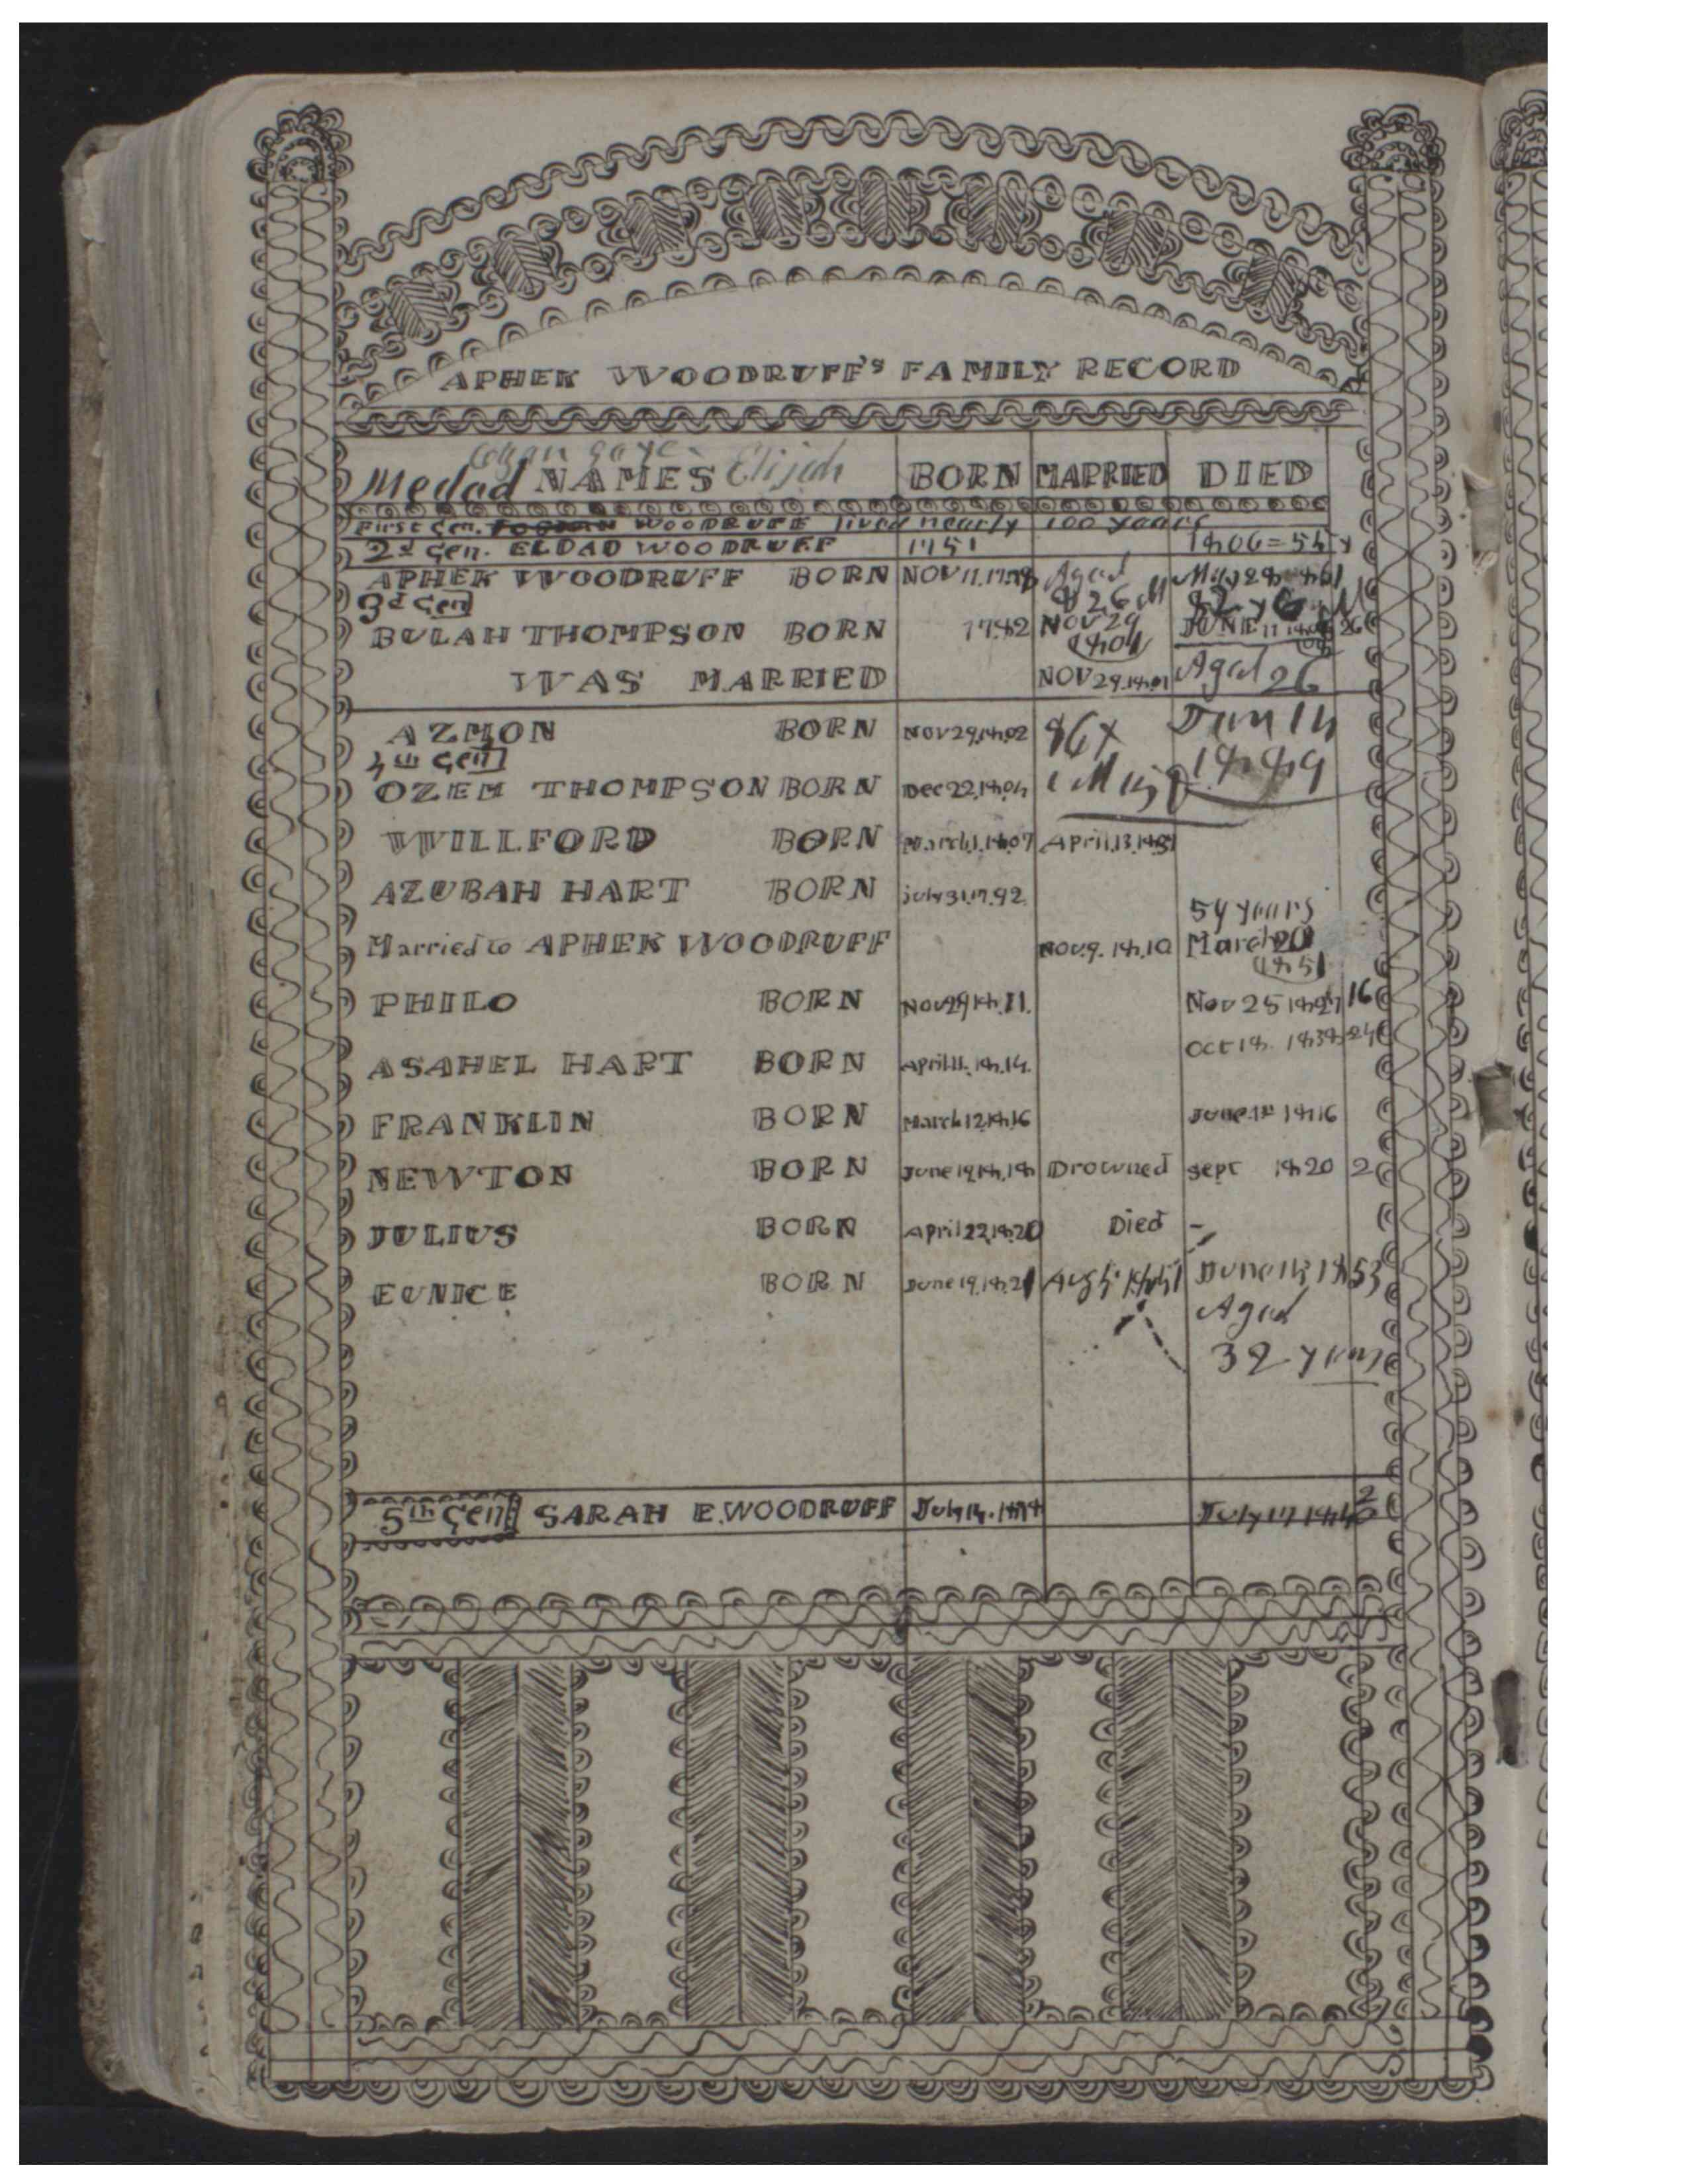 APHEK WOODRUFF'S FAMILY RECORD
Medad NAMES Elijah BORN MARRIED DIED
First Gen. WOODRUFF lived nearly 100 years
2d Gen. ELDAD WOODRUFF 1751 1806=54 y
APHEK WOODRUFF BORN NOV 11. 1778 Aged May 28 1861
3d Gen 82 6 M 82 y 6 M
BULAH THOMPSON BORN 1782 NOV 29 JUNE 11 1808 26
1801
WAS MARRIED NOV 29. 1801 Aged 26
AZMON BORN Nov 29, 1802 86 Y Jan 14
4th Gen 1889
OZEM THOMPSON BORN Dec 22, 1804 1 M 15
WILLFORD BORN March 1, 1807 April, 13, 1837
AZUBAH HART BORN july 31, 1792.
59 years
Married to APHEK WOODRUFF Nov. 9. 1810 March 20
1851
PHILO BORN Nov 29 18.11. Nov 25 1827 16
ASAHEL HART BORN April 11. 18.14. Oct 18. 1838 24
FRANKLIN BORN March 12, 1816 June 1st 1816
NEWTON BORN June 19, 18.18 Drowned sept 1820 2
JULIUS BORN April 22, 1820 Died -
EUNICE BORN June 19, 1821 Aug 4 1841 June 14, 1853
Aged
32 years
5th Gen SARAH E. WOODRUFF July 14. 1838 July 17 1840 2